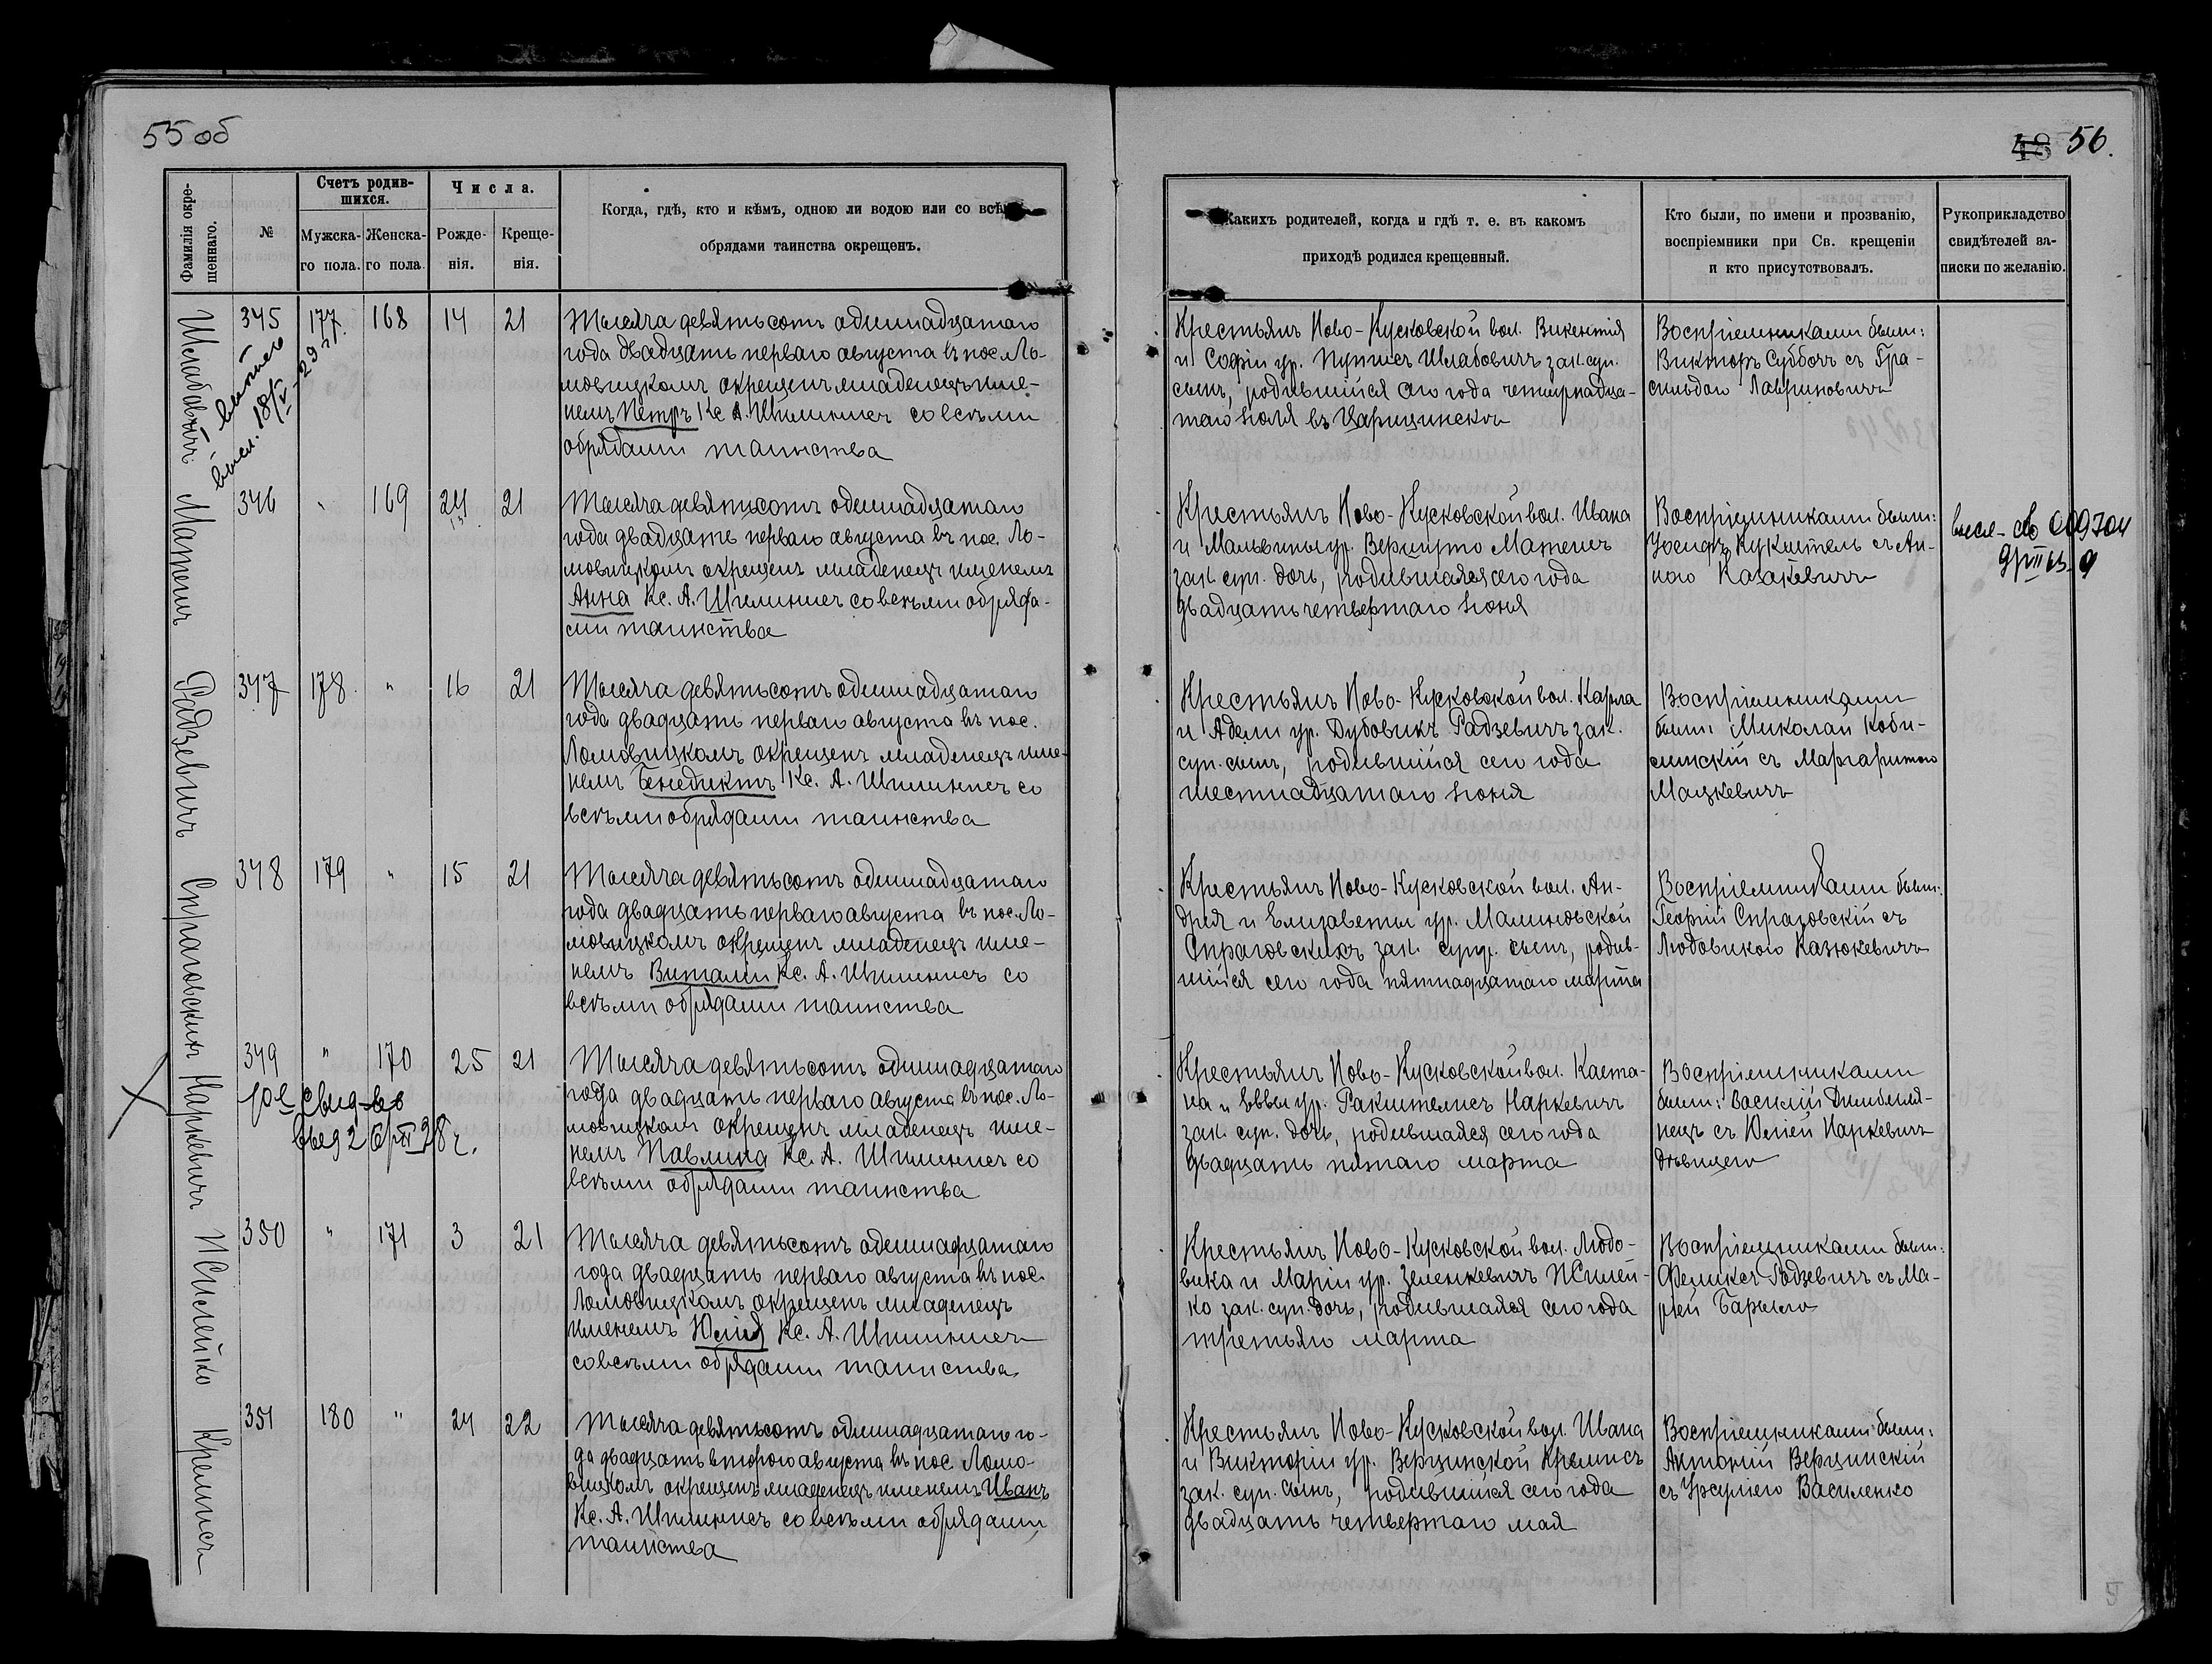 55 об
48 56.
Фамилія окре-
щеннаго.
№
Счетъ родив-
шихся.
Мужска-
го пола.
Женска-
го пола
Числа.
Рожде-
нія.
Креще-
нія.
Когда, гдѣ, кто и кѣмъ, одною ли водою или со всѣ
обрядами таинства окрещенъ.
Какихъ родителей, когда и гдѣ т. е. въ какомъ
приходѣ родился крещенный.
Кто были, по имени и прозванію,
воспріемники при Св. крещеніи
и кто присутствовалъ.
Рукоприкладство
свидѣтелей за-
писки по желанію.
345 177 168 14 21
Тысяча девятьсотъ одиннадцатаго
года двадцать перваго августа въ пос. Ло-
мовицкомъ окрещенъ младенецъ име-
немъ Петръ Кс. А. Шплинисъ со всѣми
обрядами таинства
Крестьянъ Ново-Кусковской вол. Викентія
и Софіи ур. зак. суп.
сынъ, родившійся сего года четырнадца-
таго іюля въ Царицинске
Воспріемниками были:
Викторъ Субботъ съ Гра-
сильдою Лавриновичъ
Матешъ
346 " 169 24 21
Тысяча девятьсотъ одиннадцатаго
года двадцать перваго августа въ пос. Ло-
мовицкомъ окрещенъ младенецъ именемъ
Анна Кс. А. Шплинисъ со всѣми обряда-
ми таинства
Крестьянъ Ново-Кусковской вол. Ивана
и Мальвины ур. Матешъ
зак. суп. дочь, родившаяся сего года
двадцать четвертаго іюня
Воспріемниками были:
Іосифъ Кукштель съ Ан-
ною Казакевичъ
Радзевичъ
347 178 " 16 21
Тысяча девятьсотъ одиннадцатаго
года двадцать перваго августа въ пос.
Ломовицкомъ окрещенъ младенецъ име-
немъ Бенедиктъ Кс. А. Шплинисъ со
всѣми обрядами таинства
Крестьянъ Ново-Кусковской вол. Карла
и Адели ур. Дубовикъ Радзевичъ зак.
суп. сынъ, родившійся сего года
шестнадцатаго іюня
Воспріемниками
были: Миколай Коби-
линскій съ Маргаритою
Мацкевичъ
Спраговскихъ
348 179 " 15 21
Тысяча девятьсотъ одиннадцатаго
года двадцать перваго августа въ пос. Ло-
мовицкомъ окрещенъ младенецъ име-
немъ Виталій Кс. А. Шплинисъ со
всѣми обрядами таинства
Крестьянъ Ново-Кусковской вол. Ан-
дрея и Елизаветы ур. Малиновской
Спраговскихъ зак. супр. сынъ, родив-
шійся сего года пятнадцатаго марта
Воспріемниками были:
Георгій Спраговскій съ
Людовикою Казюкевичъ
Наркевичъ
349 " 170 25 21
Тысяча девятьсотъ одиннадцатаго
года двадцать перваго августа въ пос. Ло-
мовицкомъ окрещенъ младенецъ име-
немъ Павлина Кс. А. Шплинисъ со
всѣми обрядами таинства
Крестьянъ Ново-Кусковской вол. Каета-
на и Еввы ур. Ракителисъ Наркевичъ
зак. суп. дочь, родившаяся сего года
двадцать пятаго марта
Воспріемниками
были: Василій
съ Юліей Наркевичъ
дѣвицею
Жилейко
350 " 171 3 21
Тысяча девятьсотъ одиннадцатаго
года двадцать перваго августа въ пос.
Ломовицкомъ окрещенъ младенецъ
именемъ Юлія Кс. А. Шплинисъ
со всѣми обрядами таинства
Крестьянъ Ново-Кусковской вол. Людо-
вика и Маріи ур. Зеленкевичъ Жилей-
ко зак. суп. дочь, родившаяся сего года
третьяго марта
Воспріемниками были:
Феликсъ Радзевичъ съ Ма-
ріей Барыло
Кремисъ
351 180 " 24 22
Тысяча девятьсотъ одиннадцатаго го-
да двадцать второго августа въ пос. Ломо-
вицкомъ окрещенъ младенецъ именемъ Иванъ
Кс. А. Шплинисъ со всѣми обрядами
таинства
Крестьянъ Ново-Кусковской вол. Ивана
и Викторіи ур. Верцинской Кремисъ
зак. суп. сынъ, родившійся сего года
двадцать четвертаго мая
Воспріемниками были:
Антоній Верцинскій
съ Урсулею Василенко